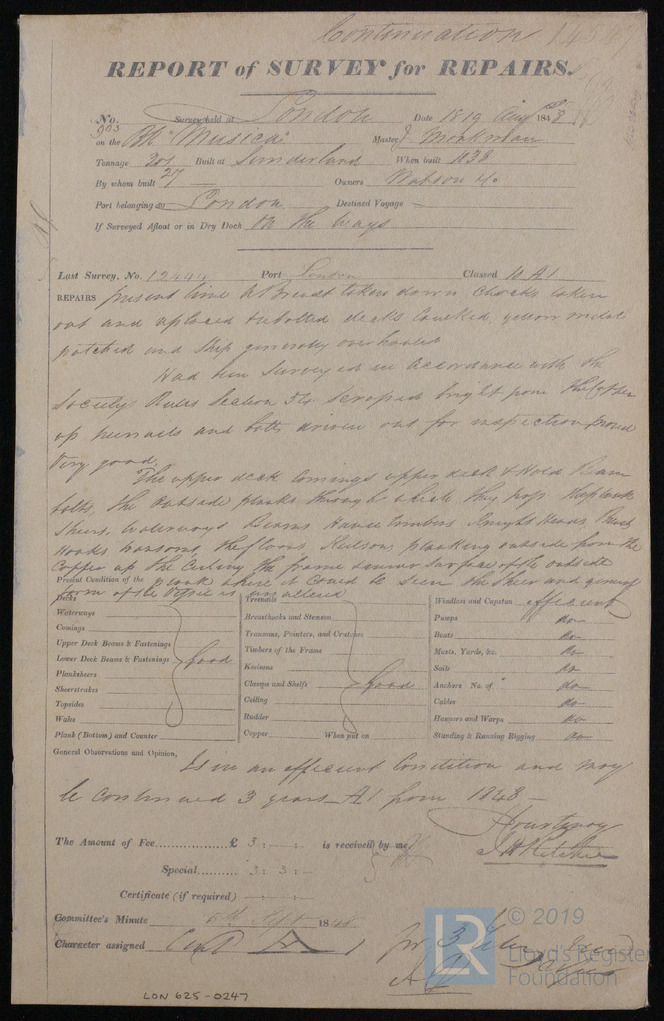 Continuation
REPORT of SURVEY for REPAIRS.
No. 903 Survey held at London Date 1819 Augt 1848
on the Bk "Musica" Master J Monkman
Tonnage 201 Built at Sunderland When built 1838
By whom built 27 Owners
Port belonging to London Destined Voyage
If Surveyed Afloat or in Dry Dock On the ways
Last Survey, No. 12444 Port London Classed 10 A1
REPAIRS present time A Breast taken down, Chocks taken
out and replaced & bolted decks Caulked, yellow metal
patched and Ship generally overhauled
Had been Surveyed in accordance with the
Society Rules Section 54 Scraped bright from the Copper
up treenails and bolts driven out for inspection found
Very good.
The upper deck Comings upper deck & Hold Beam
bolts, the outside planks through which they pass
Sheers, Waterways Beams Hawse timbers Knight Heads, Breast
Hooks transoms, the floors, Keelson, planking outside from the
Copper up the Ceiling the frame inner Surface of the outside
plank where it Could be seen the Sheer and general
form of the Vessel is unaltered
Present Condition of the
Decks
Waterways
Comings
Upper Deck Beams & Fastenings
Lower Deck Beams & Fastenings good
Planksheers
Sheerstrakes
Topsides
Wales
Plank (Bottom) and Counter
Treenails
Breasthooks and Stemson
Transoms, Pointers, and Crutches
Timbers of the Frame
Keelsons
Clamps and Shelfs good
Ceiling
Rudder
Copper When put on
Windlass and Capstan efficient
Pumps do
Boats do
Masts, Yards, &c. do
Sails do
Anchors No. of do
Cables do
Hawsers and Warps do
Standing & Running Rigging do
General Observations and Opinion,
Is in an efficient Condition and may
be continued 3 years A1 from 1848 -
J H Ritchie
The Amount of Fee £ 3 : - : - is received by me,
Special 3 : 3 : -
Certificate (if required)
Committee's Minute 1848
Character assigned Cont A 1 for 3
LON 625-0247
LR
© 2019
Lloyd's Register
Foundation